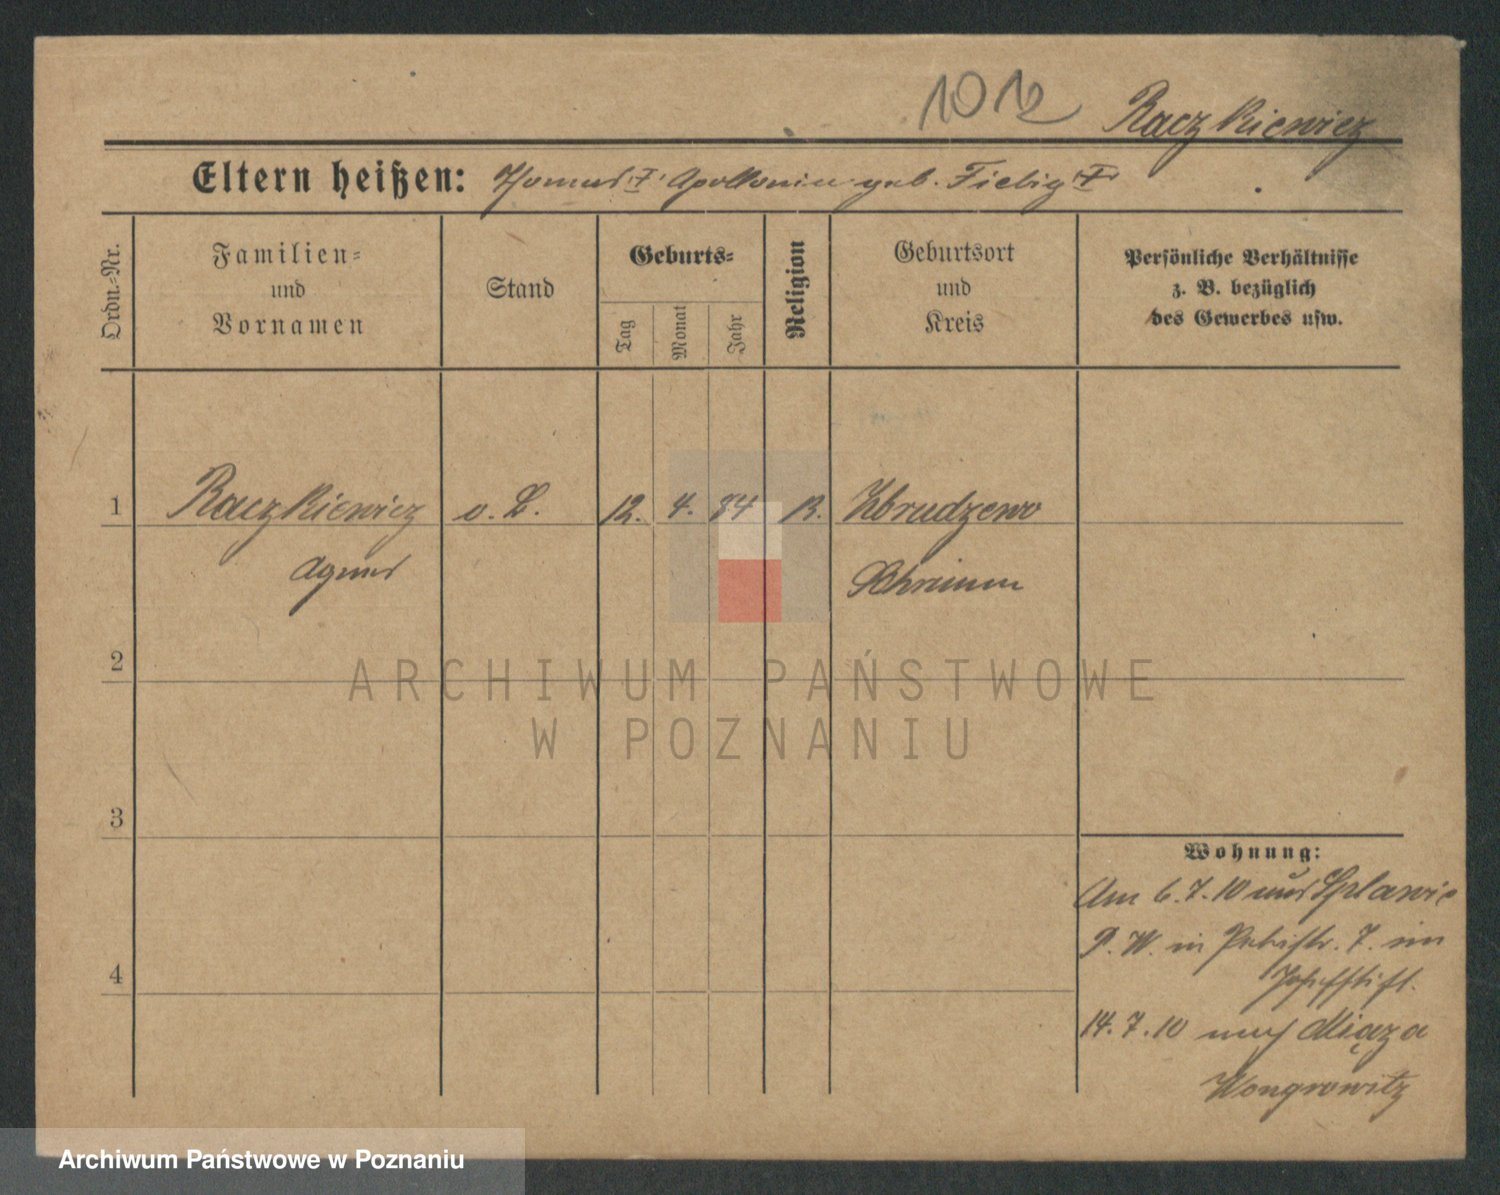 1012 Raczkiewicz
Eltern heißen: Thomas † Apollonia geb. Fiebig †
Ordn.-Nr.
Familien-
und
Vornamen
Stand
Geburts-
Tag
Monat
Jahr
Religion
Geburtsort
und
Kreis
Persönliche Verhältnisse
z. B. bezüglich
des Gewerbes usw.
1 Raczkiewicz o. B. 12. 4. 84 K. Zbrudzewo
Agnes Schrimm
2
ARCHIWUM PAŃSTWOWE
W POZNANIU
3
Wohnung:
Am 6.7.10 aus Splawie
P. W. in Petristr. 7. im
Josefstift.
4
14.7.10 nach Miąza
Wongrowitz
Archiwum Państwowe w Poznaniu